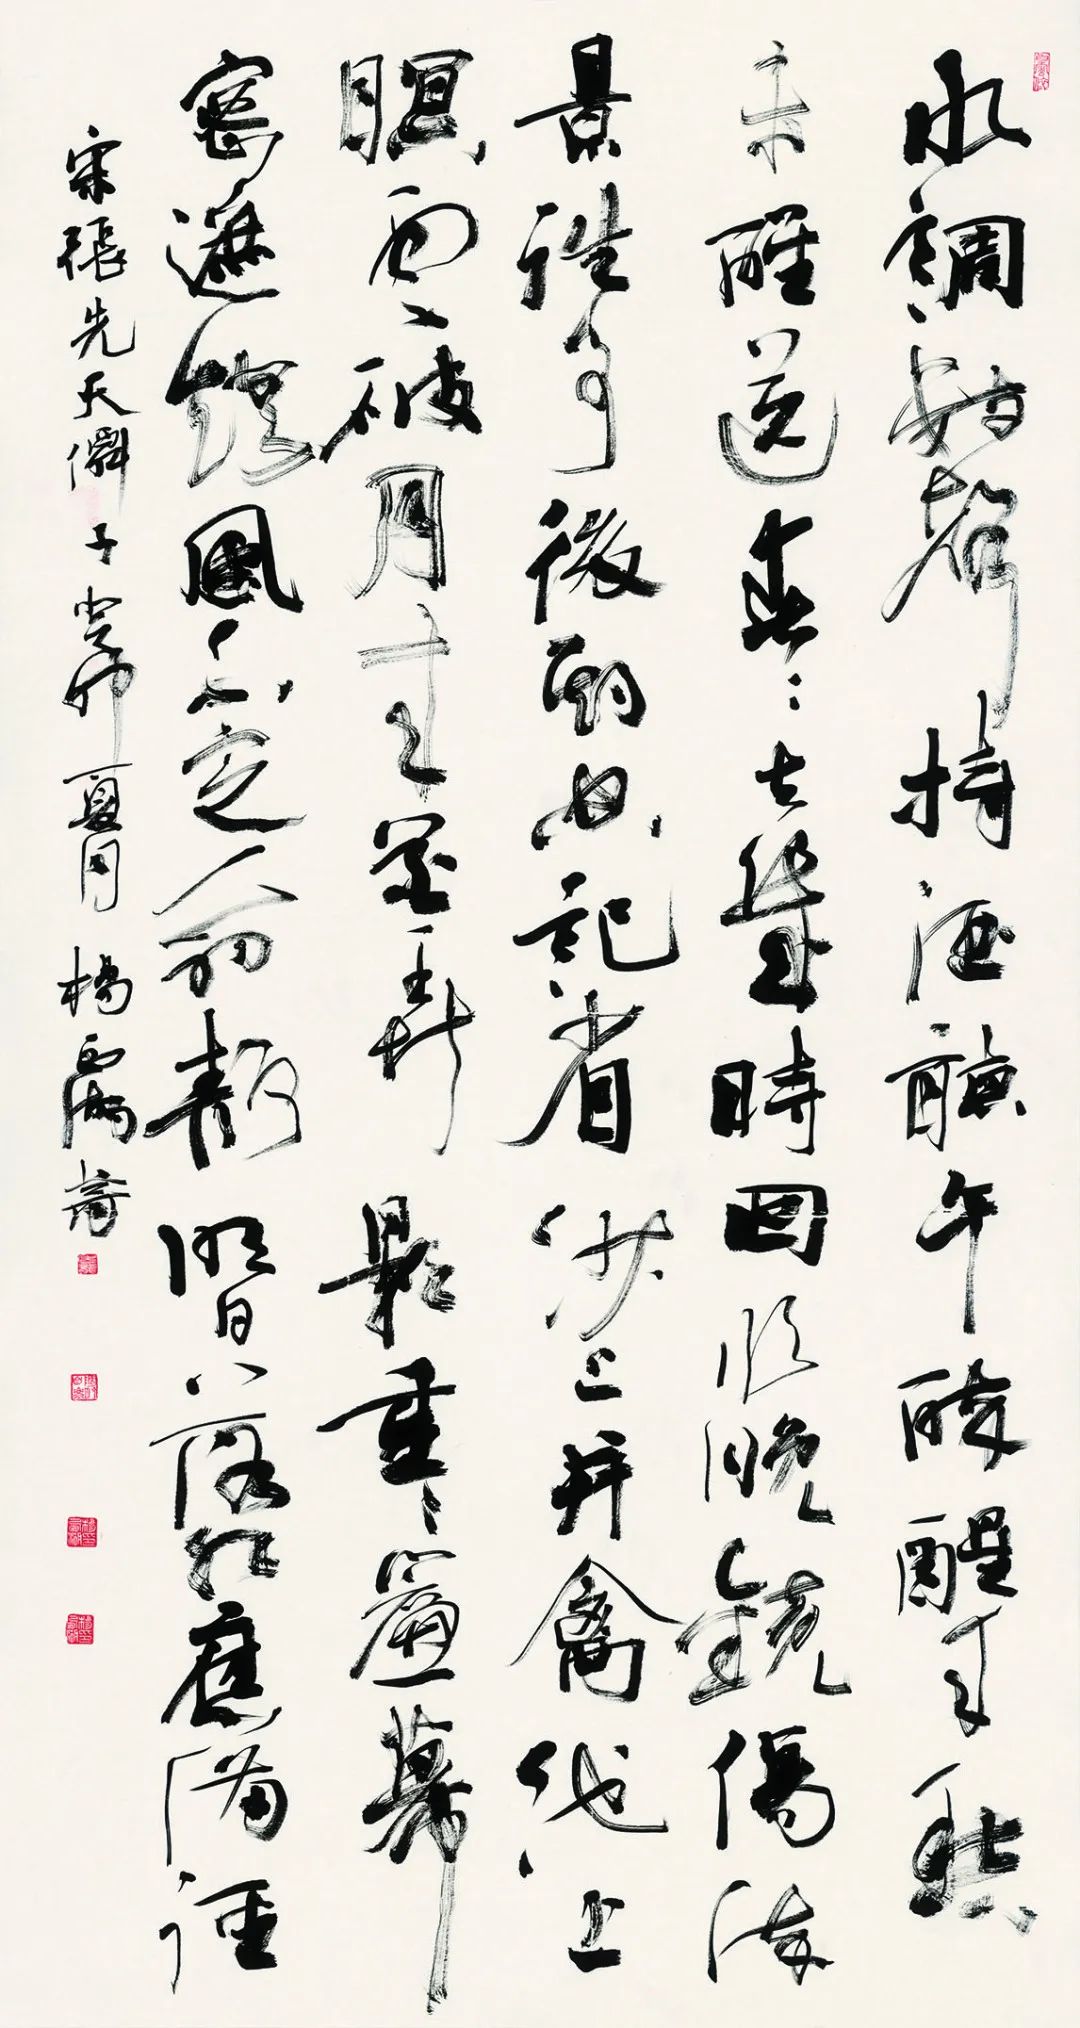 水調數聲持酒聽午醉醒來愁
未醒送春〻去幾時回臨晚鏡傷流
景往事後期空記省沙上并禽池上
暝雲破月來花弄影重〻簾幕
密遮燈風不定人初靜明日落紅應滿徑
宋張先天僊子癸卯夏月楊